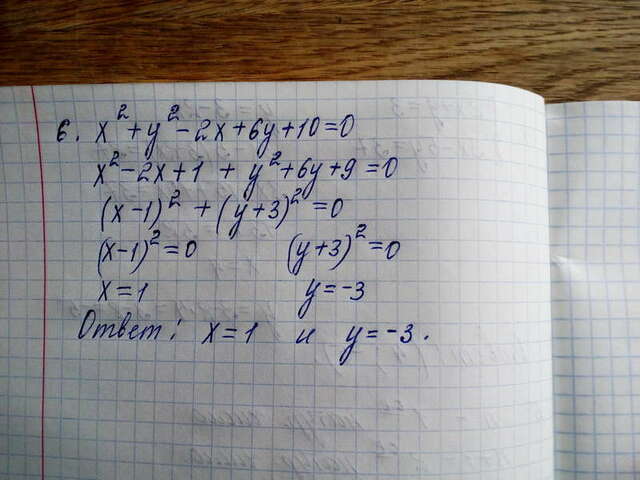 6. x² + y² - 2x + 6y + 10 = 0
x² - 2x + 1 + y² + 6y + 9 = 0
(x - 1)² + (y + 3)² = 0
(x - 1)² = 0 (y + 3)² = 0
x = 1 y = -3
Ответ: x = 1 и y = -3.